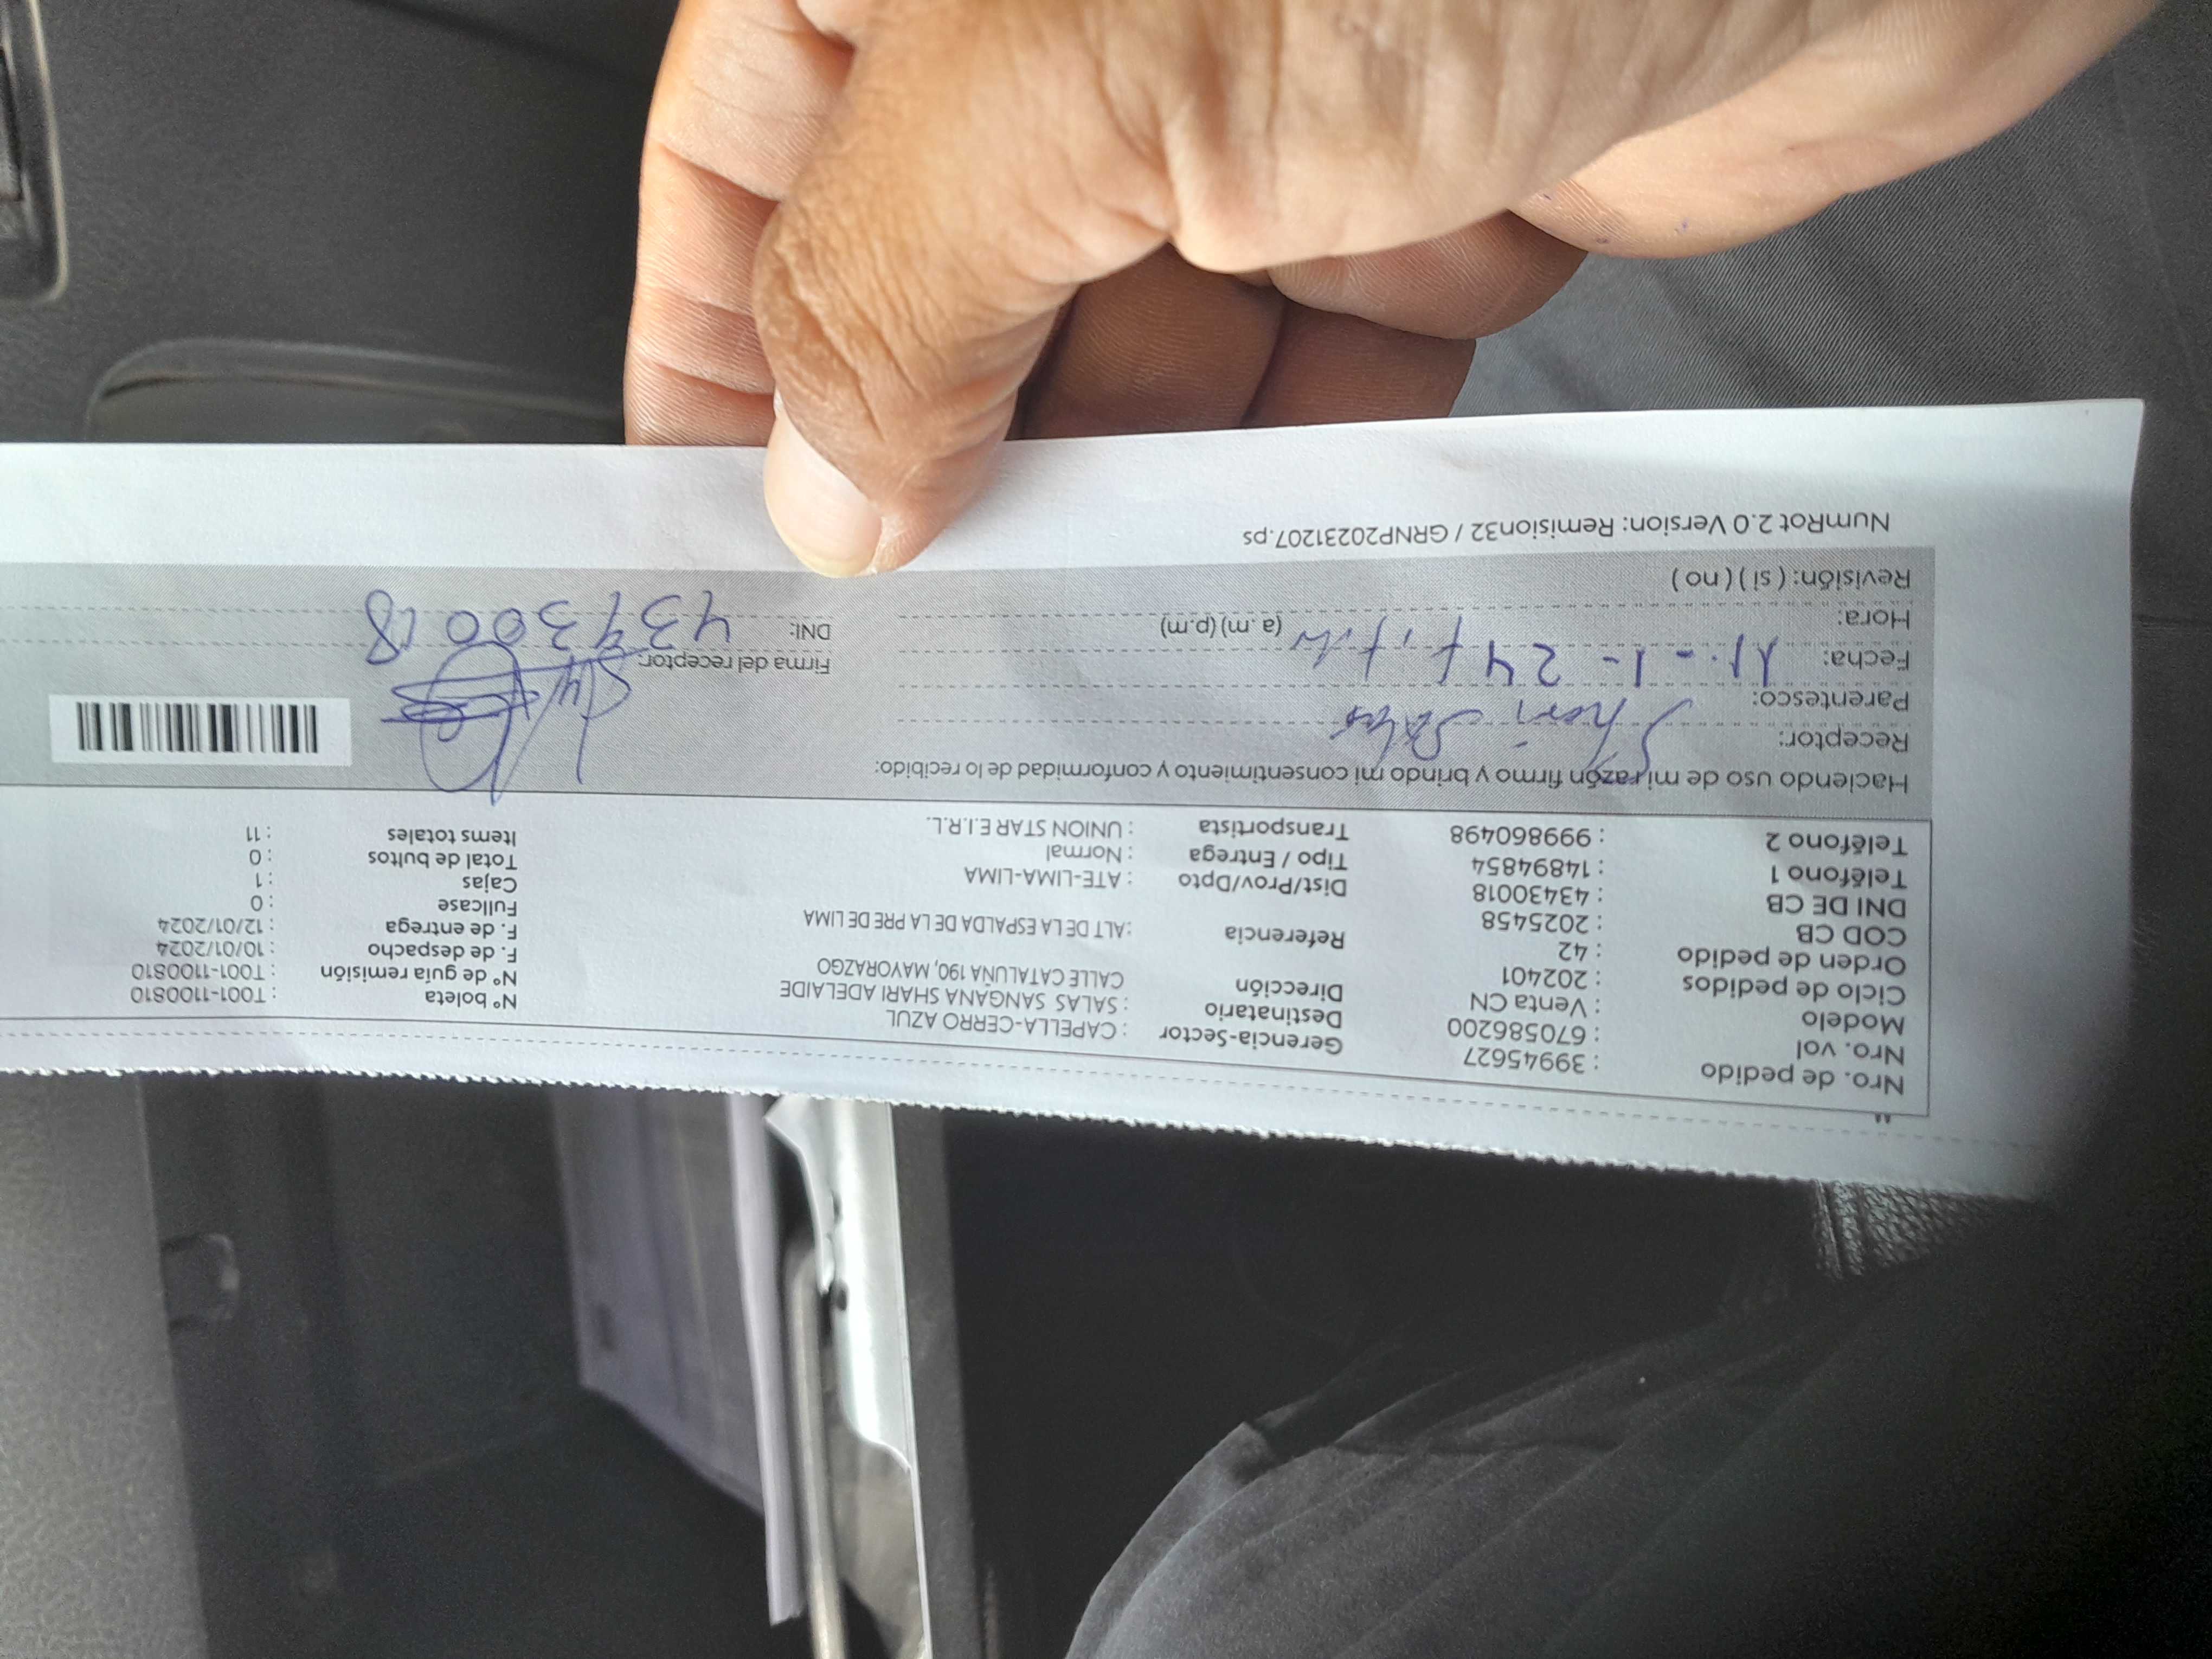 Nro. de pedido : 39945627 Gerencia-Sector : CAPELLA-CERRO AZUL Nº boleta : T001-1100810
Nro. vol : 670586200 Destinatario : SALAS SANGANA SHARI ADELAIDE Nº de guía remisión : T001-1100810
Modelo : Venta CN Dirección CALLE CATALUÑA 190, MAYORAZGO F. de despacho : 10/01/2024
Ciclo de pedidos : 202401 F. de entrega : 12/01/2024
Orden de pedido : 42 Referencia : ALT DE LA ESPALDA DE LA PRE DE LIMA Fullcase : 0
COD CB : 2025458 Cajas : 1
DNI DE CB : 43430018 Dist/Prov/Dpto : ATE-LIMA-LIMA Total de bultos : 0
Teléfono 1 : 14894854 Tipo / Entrega : Normal Items totales : 11
Teléfono 2 : 999860498 Transportista : UNION STAR E.I.R.L.
Haciendo uso de mi razón firmo y brindo mi consentimiento y conformidad de lo recibido:
Receptor: Shari Salas
Parentesco:
Fecha: 11-1-24 Firma del receptor:
Hora: (a.m) (p.m) DNI: 43430018
Revisión: ( si ) ( no )
NumRot 2.0 Version: Remision32 / GRNP20231207.ps